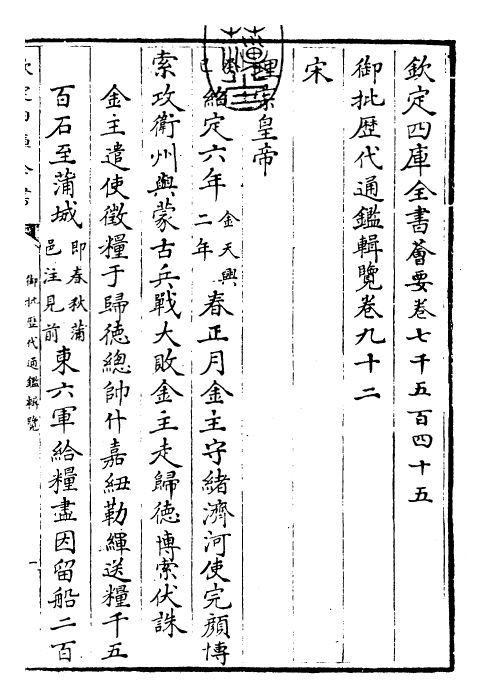 欽定四庫全書薈要卷七千五百四十五
御批歴代通鑑輯覽卷九十二
宋
理宗皇帝
癸巳紹定六年金天興二年春正月金主守緒濟河使完顔博
索攻衛州與蒙古兵戰大敗金主走歸徳博索伏誅
金主遣使徵糧于歸徳總帥什嘉紐勒緷送糧千五
百石至蒲城即春秋蒲邑注見前東六軍給糧盡因留船二百
御批歴代通鑑輯覽
一